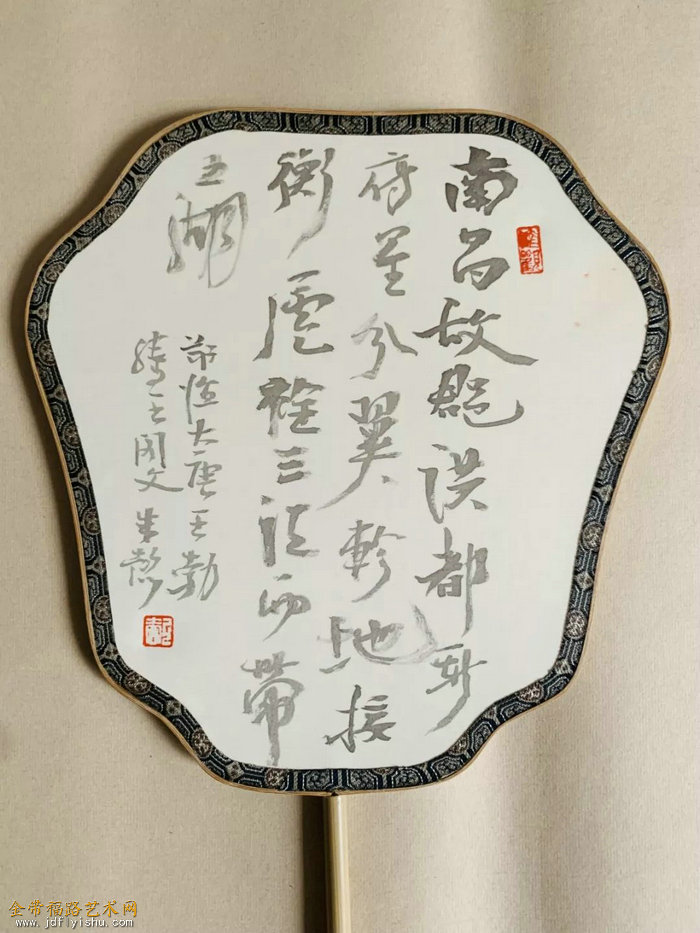 南昌故郡洪都新
府星分翼軫地接
衡廬襟三江而帶
五湖
大唐王勃
滕王閣文
金带福路艺术网
www.jdflyishu.com